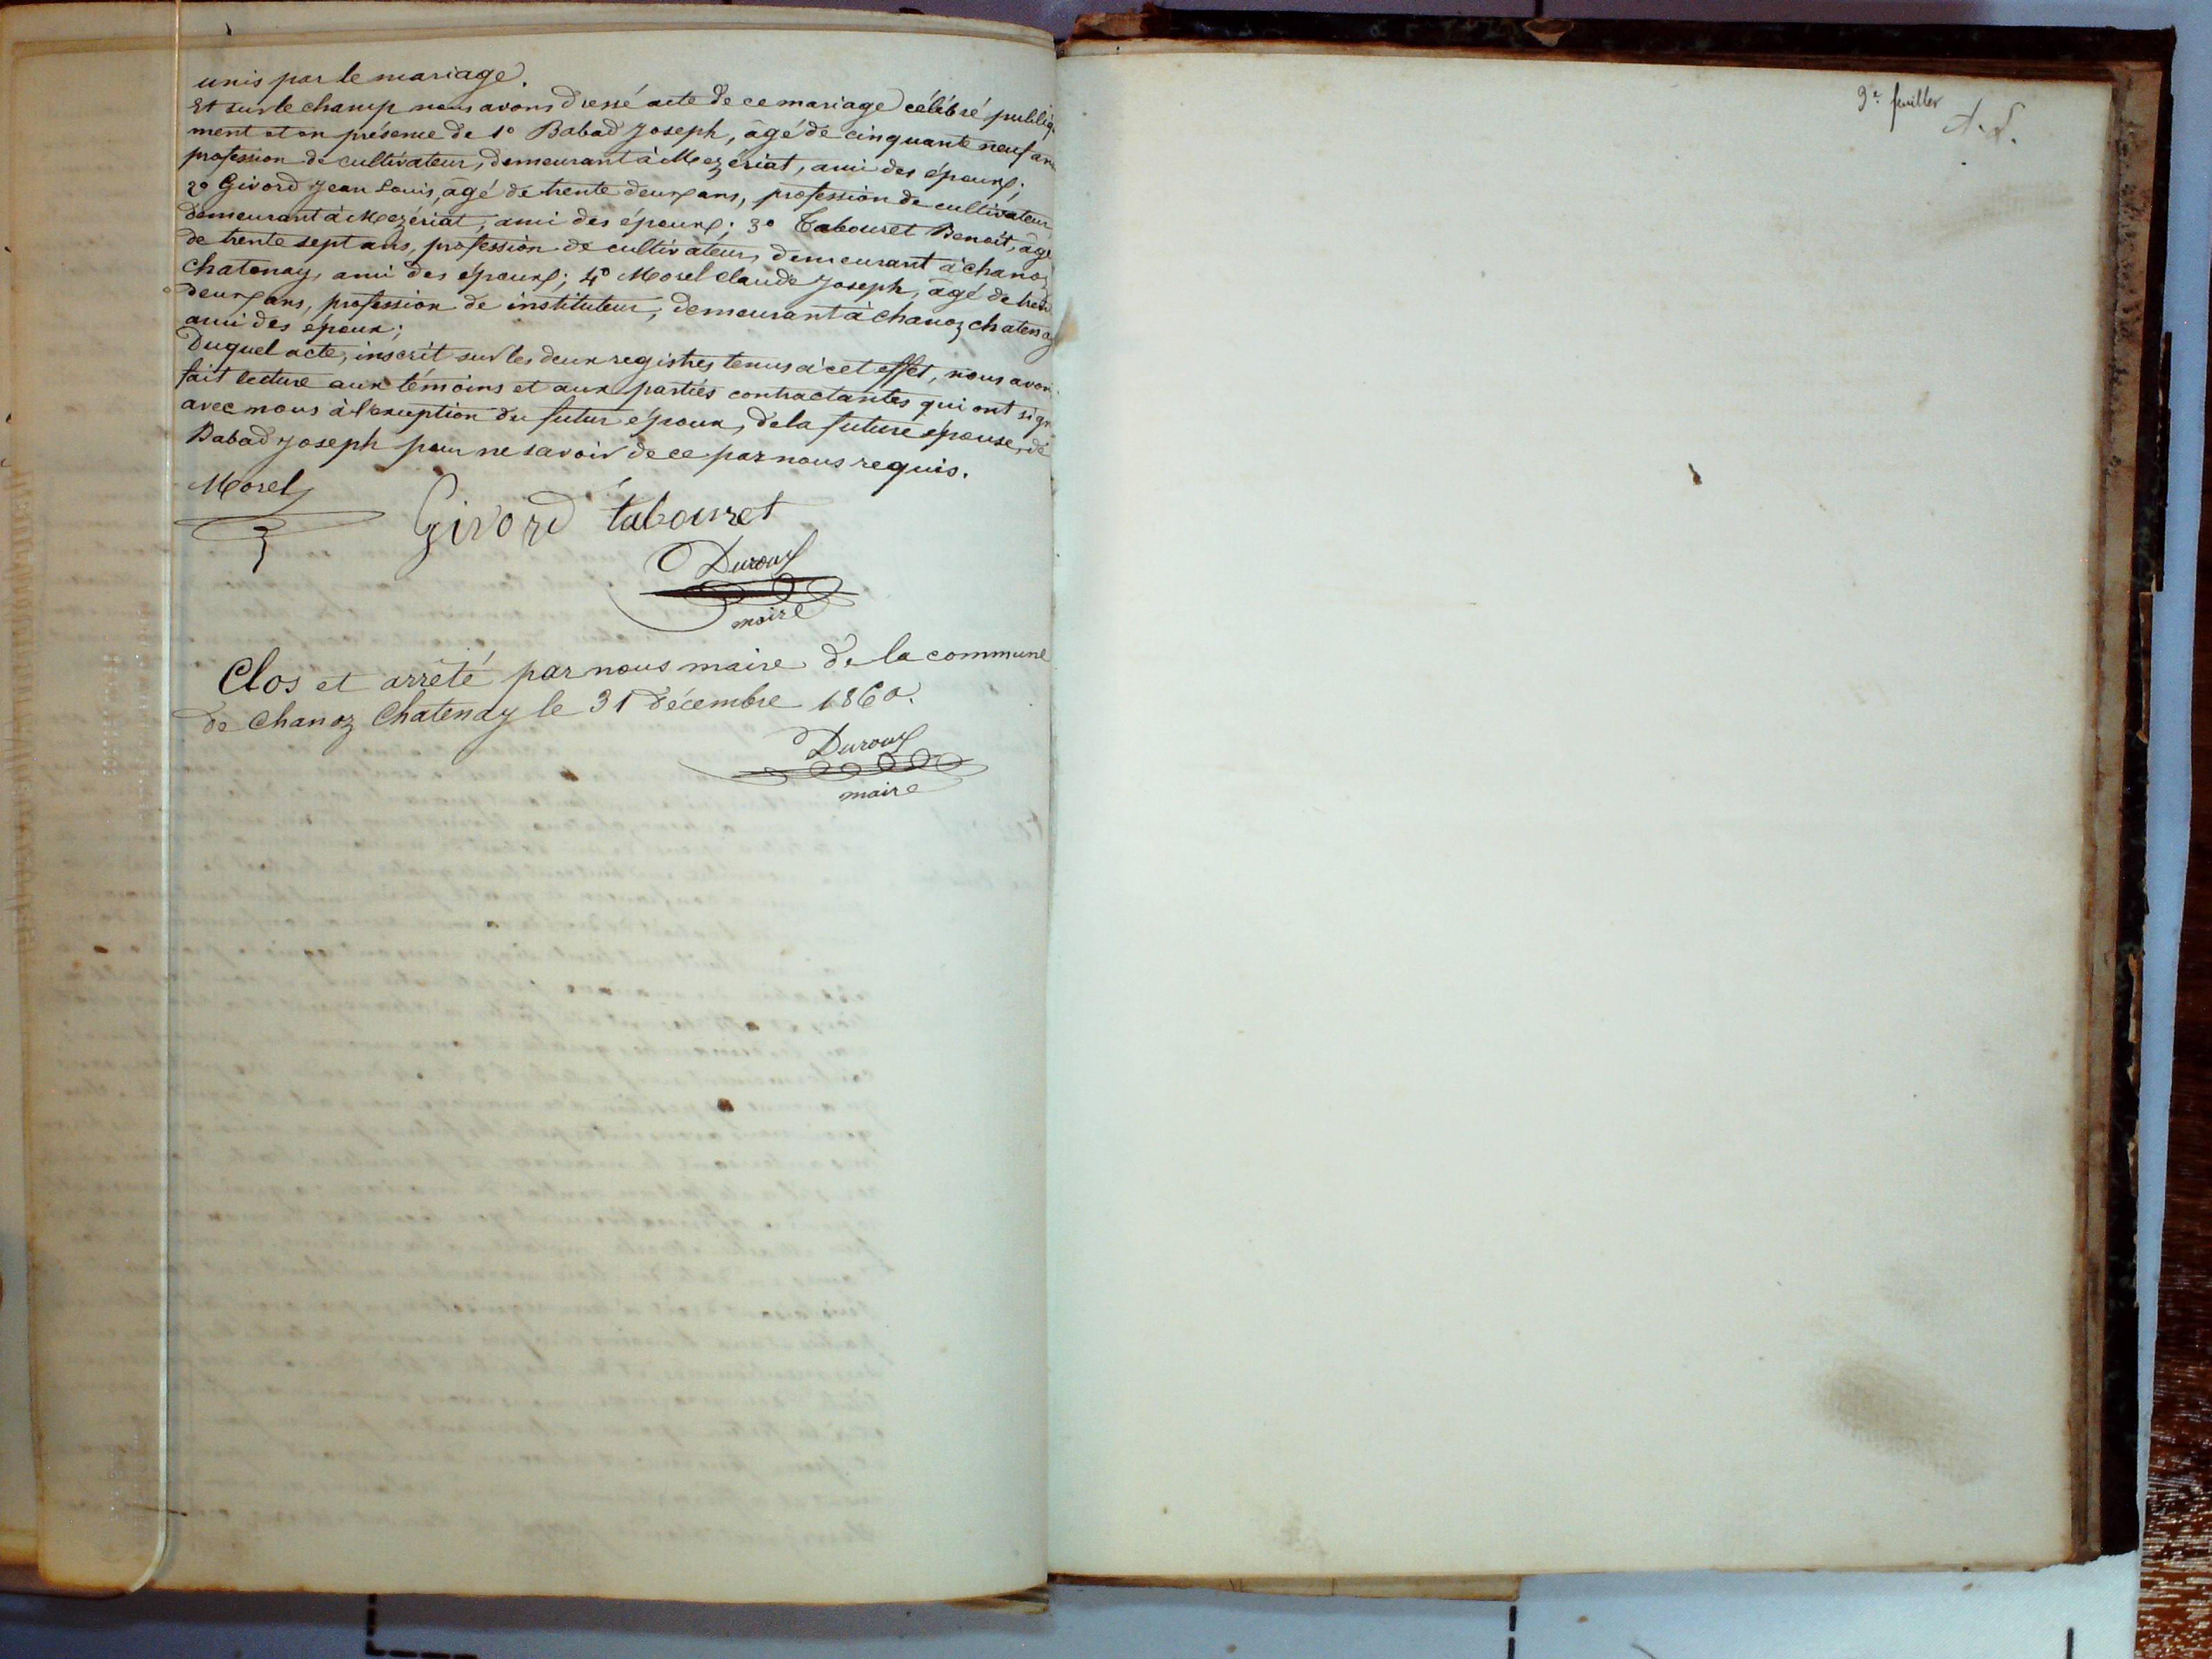 unis par le mariage.
Et sur le champ nous avons dressé acte de ce mariage célébré publiq
ment et en présence de 1º Babad Joseph, âgé de cinquante neuf ans
profession de cultivateur, demeurant à Mezériat, ami des époux;
2º Givord Jean Louis, âgé de trente deux ans, profession de cultivateur
demeurant à Mezériat, ami des époux; 3º Tabouret Benoit, âgé
de trente sept ans, profession de cultivateur, demeurant à Chanoz
Chatenay, ami des époux; 4º Morel Claude Joseph, âgé de trente
deux ans, profession de instituteur, demeurant à Chanoz chatenay
ami des époux;
Duquel acte, inscrit sur les deux registres tenus à cet effet, nous avons
fait lecture aux témoins et aux parties contractantes qui ont signé
avec nous à l'exception du futur époux, de la future épouse, de
Babad Joseph pour ne savoir de ce par nous requis.
Morel
Givord tabouret
Duroux
maire
Clos et arrêté par nous maire de la commune
de Chanoz Chatenay le 31 décembre 1860.
Duroux
maire
9e feuillet